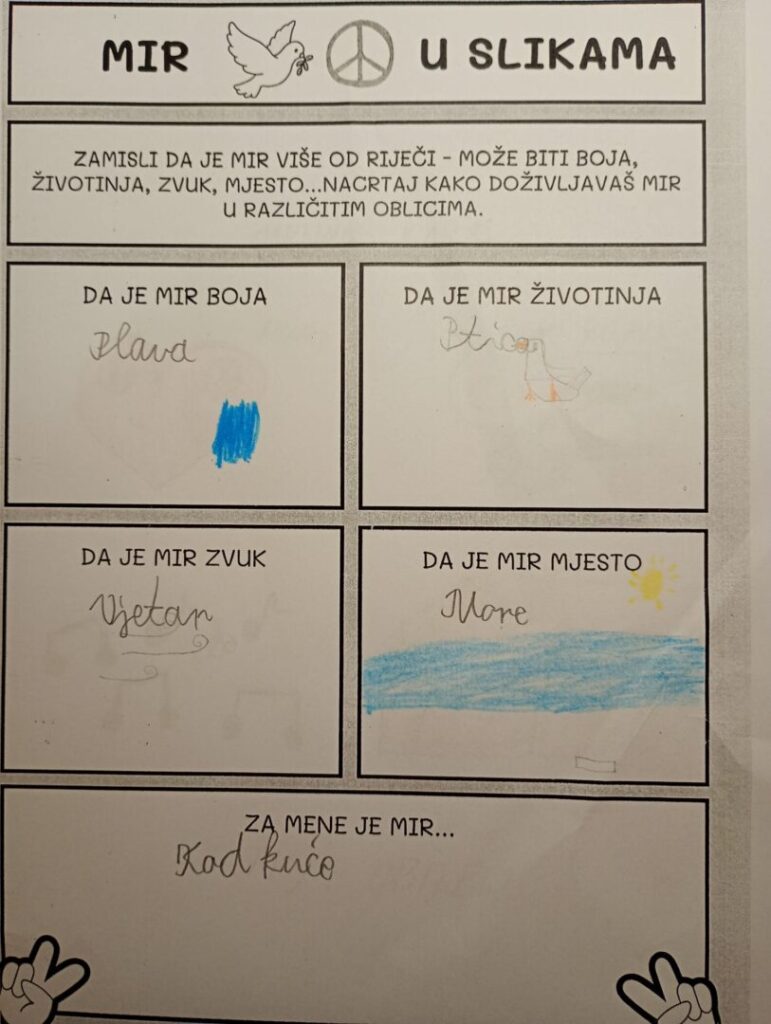 MIR U SLIKAMA
ZAMISLI DA JE MIR VIŠE OD RIJEČI - MOŽE BITI BOJA,
ŽIVOTINJA, ZVUK, MJESTO...NACRTAJ KAKO DOŽIVLJAVAŠ MIR
U RAZLIČITIM OBLICIMA.
DA JE MIR BOJA
Plava
DA JE MIR ŽIVOTINJA
Ptica
DA JE MIR ZVUK
Vjetar
DA JE MIR MJESTO
More
ZA MENE JE MIR...
Kod kuće